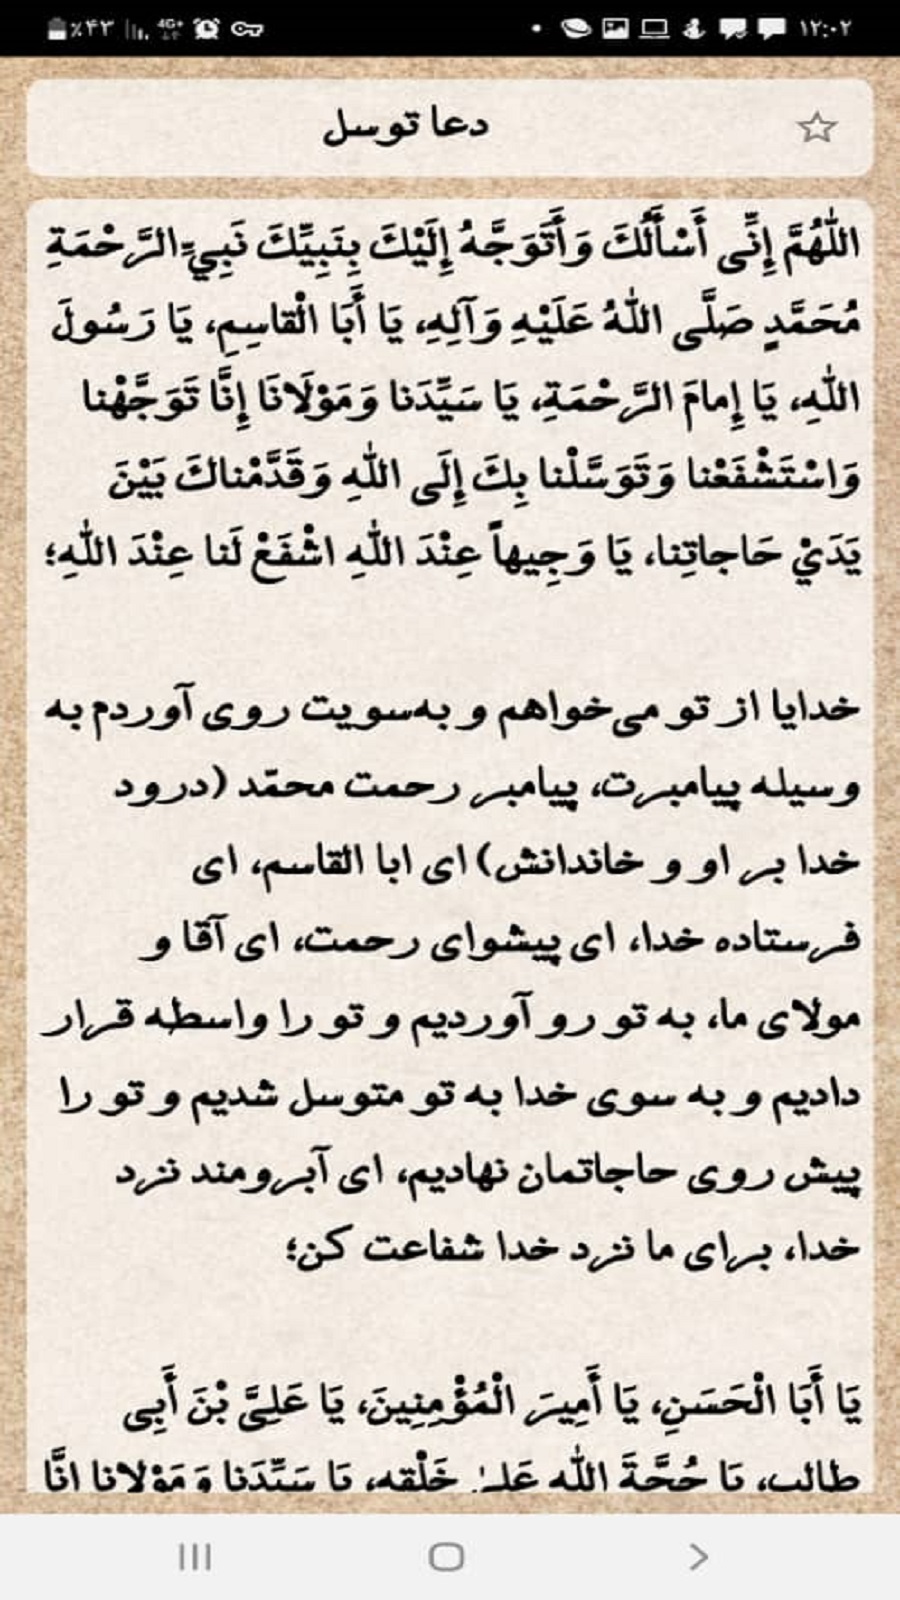 ٪۴۳ 4G+ ۱۲:۰۲
دعا توسل
اللّٰهُمَّ إِنِّى أَسْأَلُكَ وَأَتَوَجَّهُ إِلَيْكَ بِنَبِيِّكَ نَبِيِّ الرَّحْمَةِ
مُحَمَّدٍ صَلَّى اللّٰهُ عَلَيْهِ وَآلِهِ، يَا أَبَا الْقاسِمِ، يَا رَسُولَ
اللّٰهِ، يَا إِمامَ الرَّحْمَةِ، يَا سَيِّدَنا وَمَوْلَانَا إِنَّا تَوَجَّهْنا
وَاسْتَشْفَعْنا وَتَوَسَّلْنا بِكَ إِلَى اللّٰهِ وَقَدَّمْناكَ بَيْنَ
يَدَيْ حَاجاتِنا، يَا وَجِيهاً عِنْدَ اللّٰهِ اشْفَعْ لَنا عِنْدَ اللّٰهِ؛
خدایا از تو می‌خواهم و به‌سویت روی آوردم به
وسیله پیامبرت، پیامبر رحمت محمّد (درود
خدا بر او و خاندانش) ای ابا القاسم، ای
فرستاده خدا، ای پیشوای رحمت، ای آقا و
مولای ما، به تو رو آوردیم و تو را واسطه قرار
دادیم و به سوی خدا به تو متوسل شدیم و تو را
پیش روی حاجاتمان نهادیم، ای آبرومند نزد
خدا، برای ما نزد خدا شفاعت کن؛
يَا أَبَا الْحَسَنِ، يَا أَمِيرَ الْمُؤْمِنِينَ، يَا عَلِىَّ بْنَ أَبِى
طالِبٍ، يَا حُجَّةَ اللّٰهِ عَلىٰ خَلْقِهِ، يَا سَيِّدَنا وَمَوْلانا إِنَّا